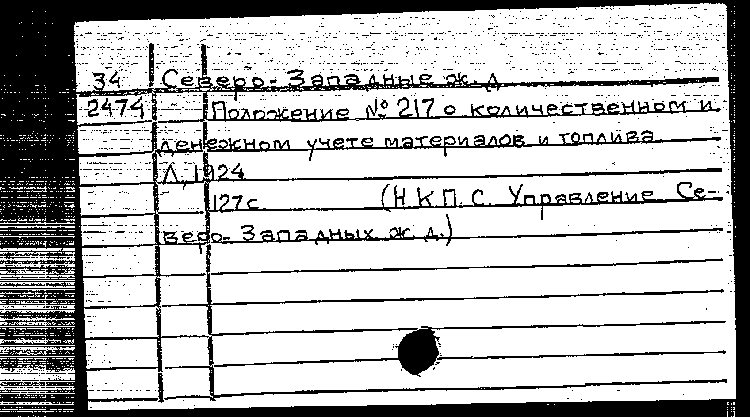 34 Северо-Западные ж. д
2474 Положение № 217 о количественном и
денежном учете материалов и топлива
Л, 1924
127 с (Н К П. С. Управление Се-
веро-Западных ж. д.)